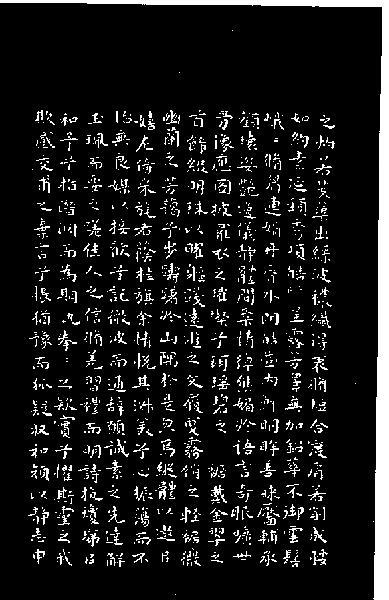 之灼若芙蕖出綠波穠纖得衷脩短合度肩若削成腰
如約素延頸秀項皓質呈露芳澤無加鉛華不御雲髻
峨峨脩眉連娟丹脣外朗皓齒內鮮明眸善睞靨輔承
權瓌姿艷逸儀靜體閑柔情綽態媚於語言奇服曠世
骨像應圖披羅衣之璀粲兮珥瑤碧之琚戴金翠之
首飾綴明珠以曜軀踐遠遊之文履曳霧綃之輕裾微
幽蘭之芳藹兮步踟躕於山隅於是忽焉縱體以遨以
嬉左倚采旄右蔭桂旗余情悅其淑美兮心振蕩而不
怡無良媒以接歡兮託微波而通辭願誠素之先達解
玉珮而要之嗟佳人之信脩羌習禮而明詩抗瓊珶以
和予兮指潛淵而為期執眷眷之款實兮懼斯靈之我
欺感交甫之棄言兮悵猶豫而狐疑收和顏以靜志申